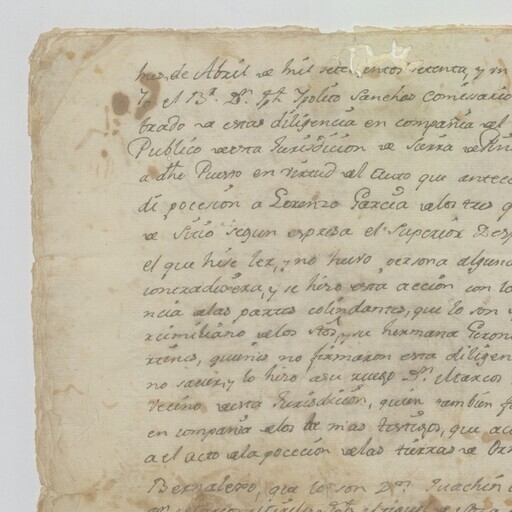 mes, de Abril de mil setecientos setenta, y n
Yo el Br. Dn. Jph. Ypolito Sanches Comissario
brado de estas diligencia en compañia del
Publico de esta Jurisdicion de Sierra de
a dho Puesto en virtud del Auto que antece
di pocecion a Lorenzo Garcia de los tres
de Sitio segun expresa el Superior Desp
el que hise ler, y no huvo persona alguna
contradixera, y se hizo esta acción con
ncia de las partes colindantes, que lo son
ximiliano de los Stos, y su hermana Geron
quienes no firmaron esta diligen
no saver, y lo hizo a su ruego Dn. Marcos
vecino de esta Jurisdicion, quien tambien f
en compañia de los de mas testigos, que
a el acto de la pocecion de las tierras de
Bernalexo, que lo son Dn. Juachin